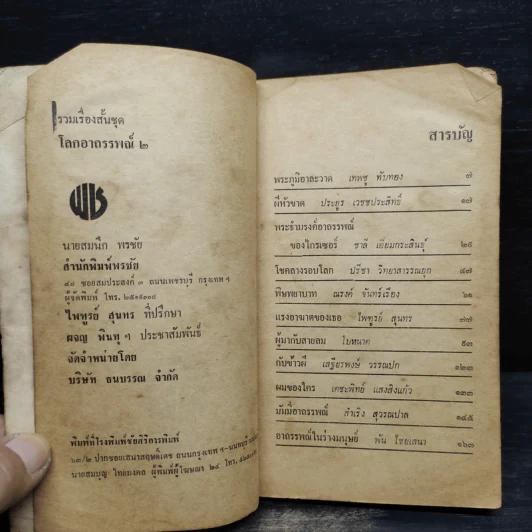 รวมเรื่องสั้นชุด
โลกอาถรรพณ์ ๒
พช
นายสมนึก พรชัย
สำนักพิมพ์พรชัย
๔๘ ซอยสมประสงค์ ๓ ถนนเพชรบุรี กรุงเทพฯ
ผู้จัดพิมพ์ โทร.
ไพฑูรย์ สุนทร ที่ปรึกษา
ผจญ พินทุฯ ประชาสัมพันธ์
จัดจำหน่ายโดย
บริษัท ธนบรรณ จำกัด
พิมพ์ที่โรงพิมพ์ชัยศิริการพิมพ์
๖๓/๒ ปากซอยเสนาสฤษดิ์เดช ถนนกรุงเทพฯ-นนทบุรี
นายสมบุญ ไทยมงคล ผู้พิมพ์ผู้โฆษณา ๒๔ โทร.
สารบัญ
พระภูมิอาละวาด เทพชู ทับทอง ๗
ผีหัวขาด ประยูร เวชชประสิทธิ์ ๑๗
พระธำมรงค์อาถรรพณ์
ของไกรเซอร์ ชาลี เอี่ยมกระสินธุ์ ๒๕
โชคลางรอบโลก ปรีชา วิทยาสารรณยุต ๔๗
พิษพยาบาท ณรงค์ จันทร์เรือง ๖๑
แรงอาฆาตของเธอ ไพฑูรย์ สุนทร ๗๗
ผู้มากับสายลม ใบหนาด ๙๓
กับข้าวผี เสฐียรพงษ์ วรรณปก ๑๒๓
ผมของใคร เดชะพิทย์ แสงสิงแก้ว ๑๓๓
มัมมี่อาถรรพณ์ สำเริง สุวรรณปาล ๑๔๕
อาถรรพณ์ในร่างมนุษย์ พัน ไชยเสนา ๑๖๓